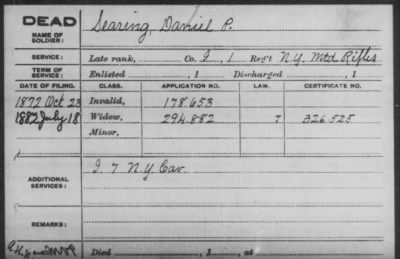 DEAD
NAME OF SOLDIER: Searing, Daniel P.
SERVICE: Late rank, Co. I, 1 Reg't N.Y. Mtd Rifles
TERM OF SERVICE: Enlisted , 1 Discharged , 1
DATE OF FILING. CLASS. APPLICATION NO. LAW. CERTIFICATE NO.
1872 Oct 23 Invalid, 178.653
1882 July 18 Widow, 294.882 326.525
Minor,
ADDITIONAL SERVICES: I. 7 N.Y. Cav.
REMARKS:
Died , 1 , at